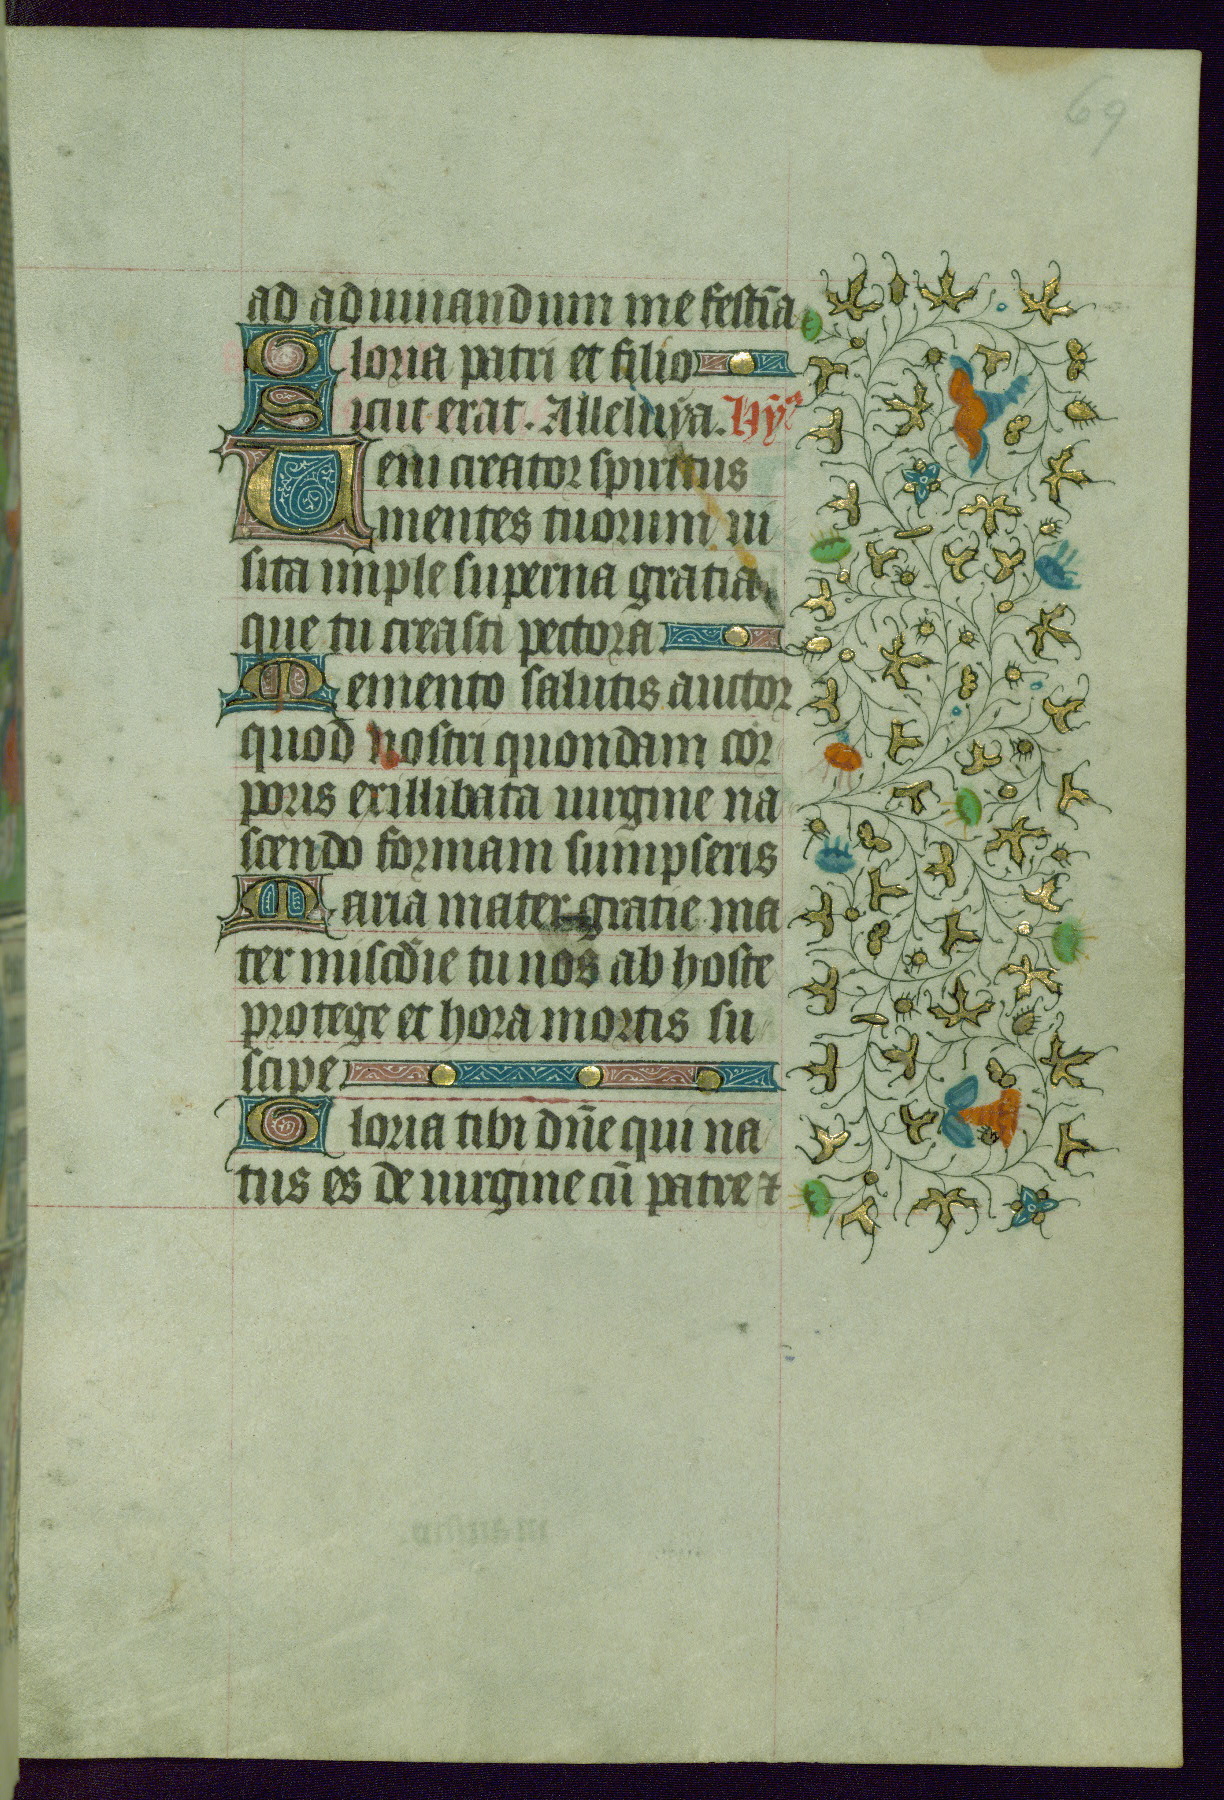 69
ad adiuuandum me festīa
Gloria patri et filio
Sicut erat. Alleluya. Hyᵃ
Ueni creator spiritus
mentes tuorum ui
sita imple superna gratia
que tu creasti pectora
Memento salutis auctor
quod nostri quondam cor
poris exillibata uirgine na
scendo formam sumpseris
Maria mater gratie ma
ter miscd̄ie tu nos ab hoste
protege et hora mortis su
scipe
Gloria tibi dn̄e qui na
tus es de uirgine cū patre ⁊